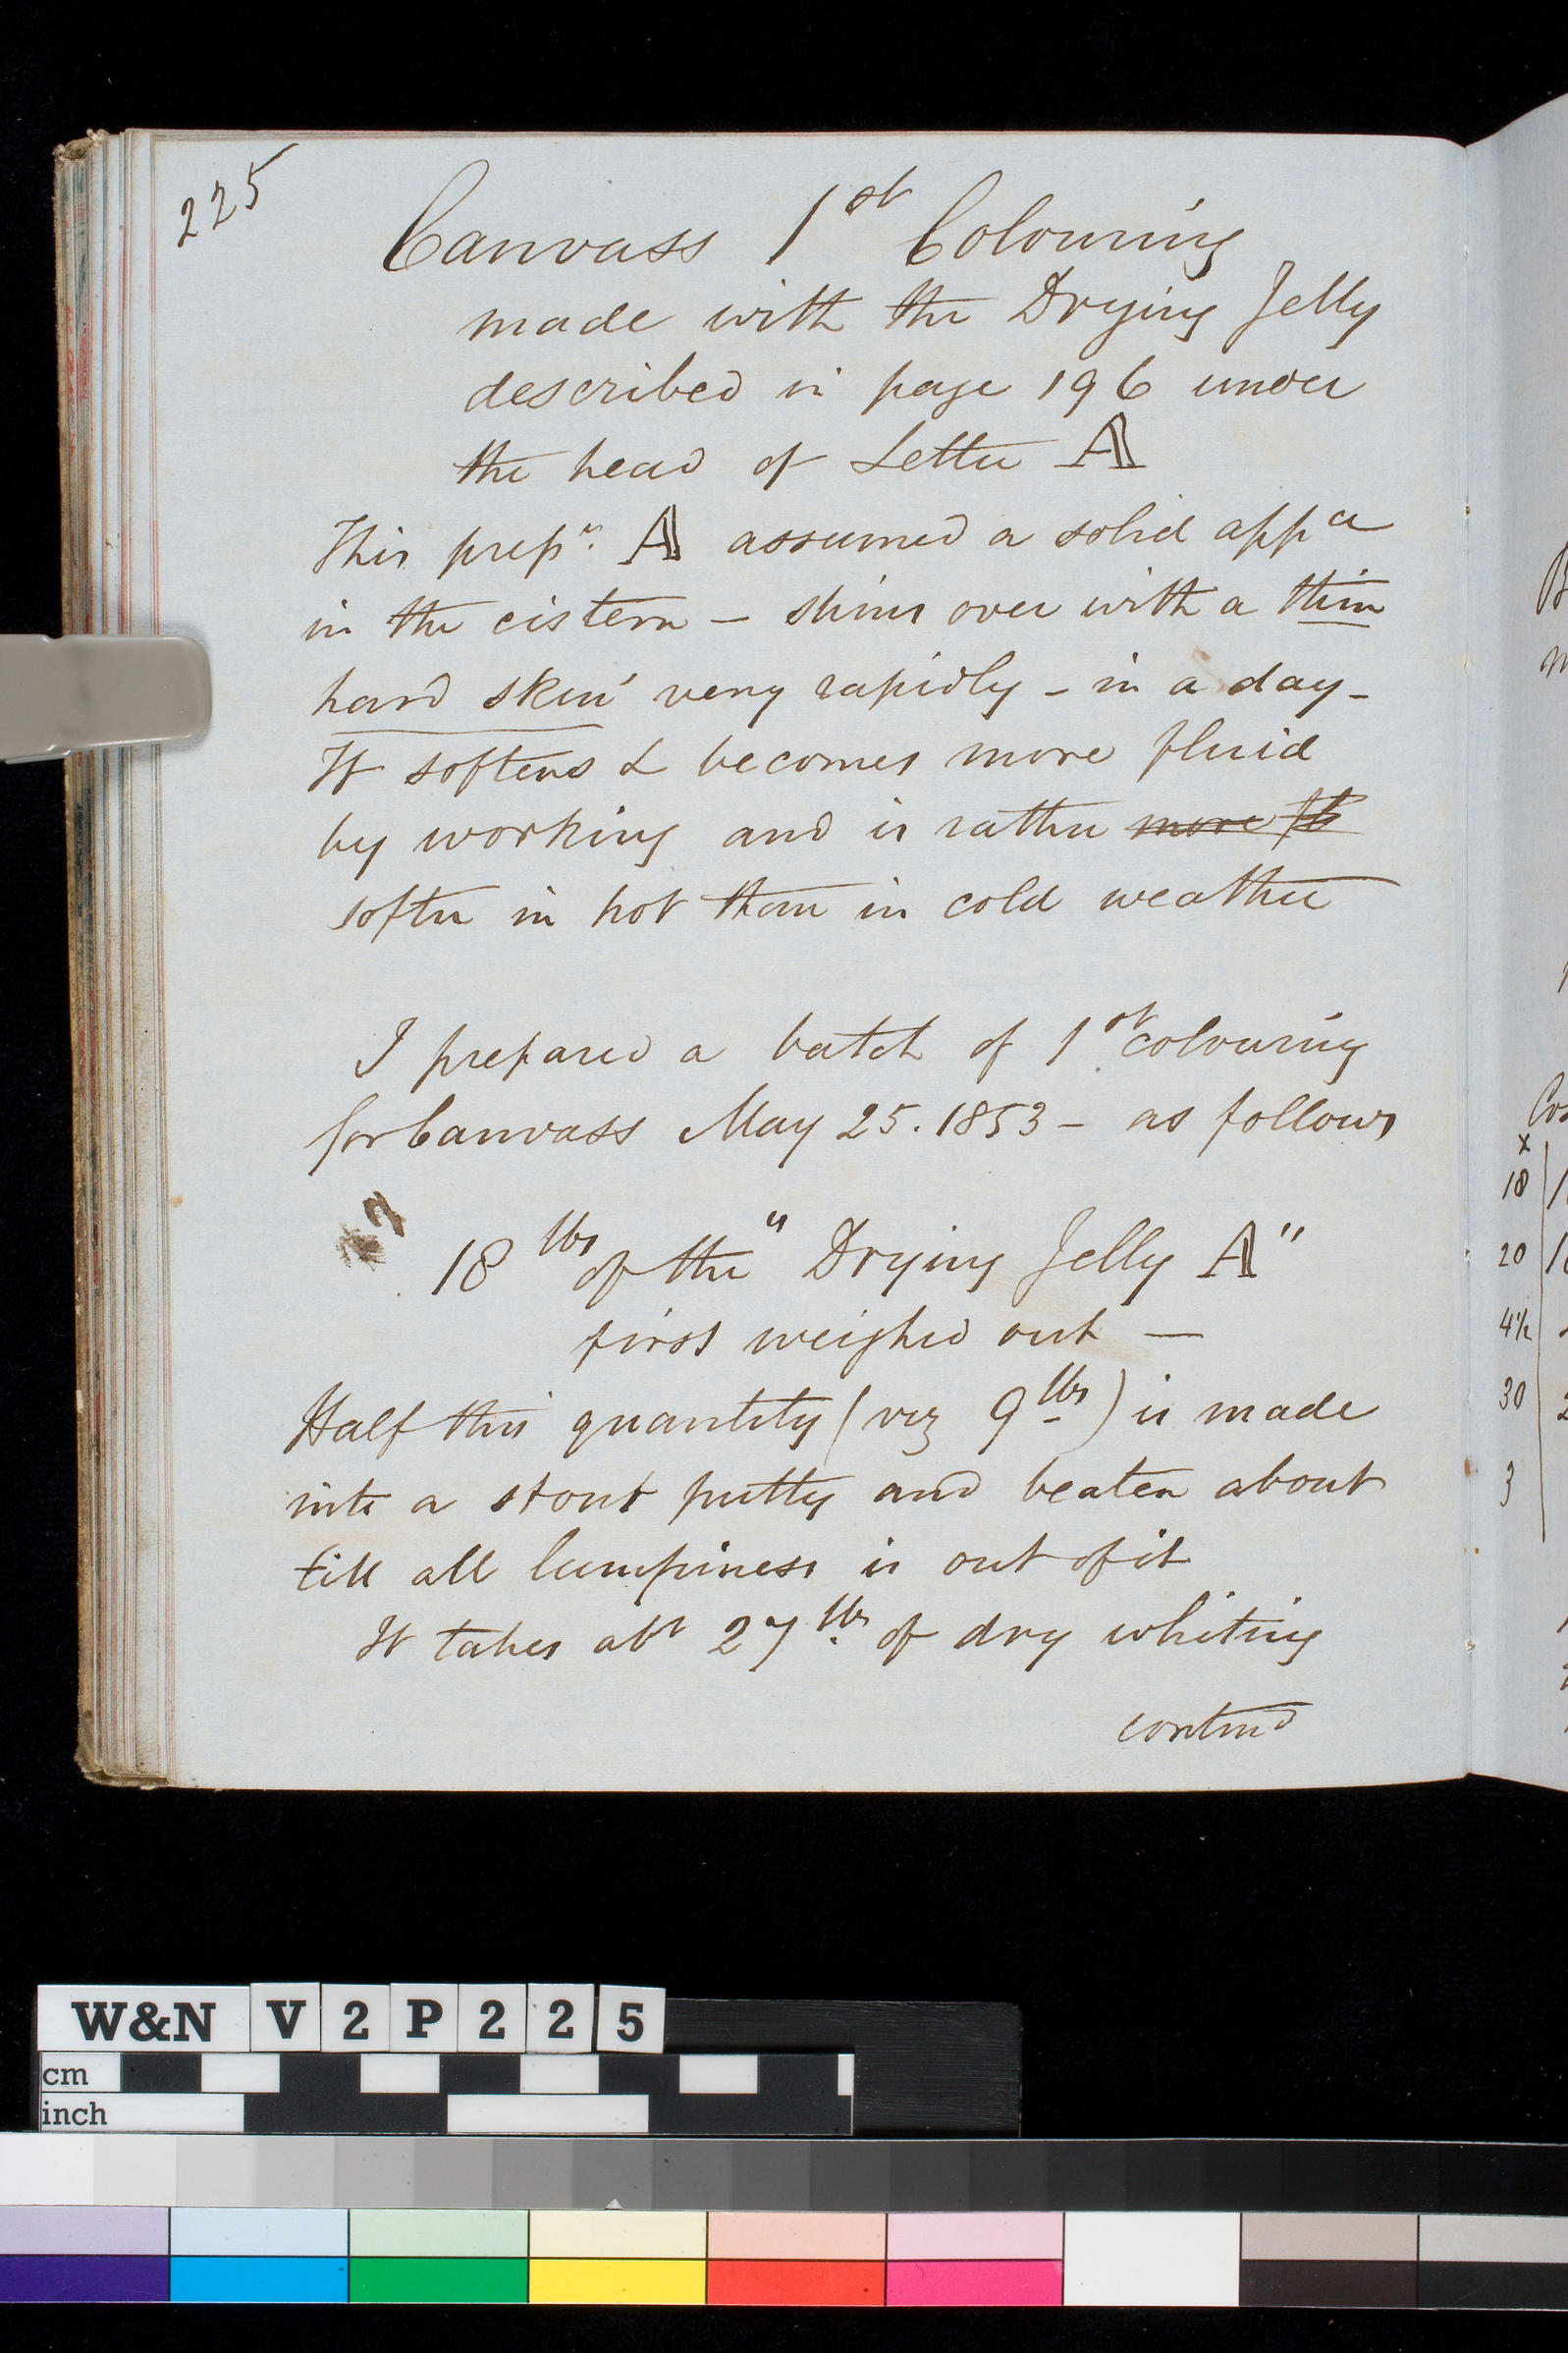 225
Canvass 1st Colouring
made with the Drying Jelly
described in page 196 under
the head of Letter A
This prepn. A assumed a solid appce
in the cistern — skins over with a thin
hard skin very rapidly - in a day -
It softens & becomes more fluid
by working and is rather more
softer in hot than in cold weather
I prepared a batch of 1st colouring
for Canvass May 25. 1853 — as follows
18 lbs of the "Drying Jelly A"
first weighed out —
Half this quantity (viz 9 lbs) is made
into a stout putty and beaten about
till all lumpiness is out of it
It takes abt 27 lbs of dry whiting
contind
x
18
20
4½
30
3
W&N V2P225
cm
inch